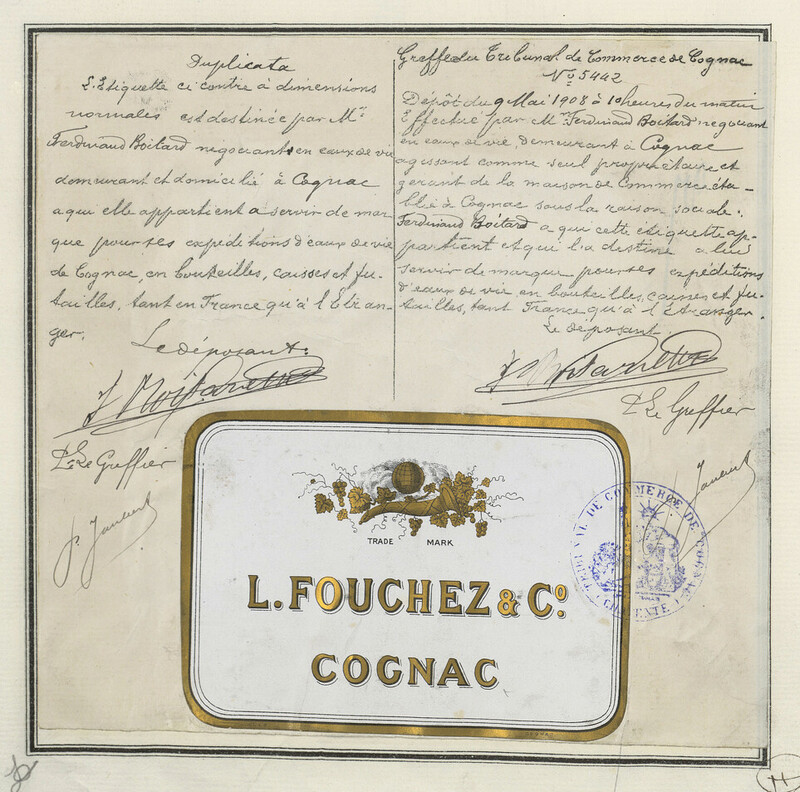 Duplicata
L'Etiquette ci contre à dimensions
normales est destinée par Mr.
Ferdinand Boitard négociant en eaux de vie
demeurant et domicilié à Cognac
a qui elle appartient a servir de mar
que pour ses expéditions d'eaux de vie
de Cognac, en bouteilles, caisses et fu-
tailles, tant en France qu'à l'Etran-
ger.
Le déposant:
F Boitard
Pr. Le Greffier
Greffe du Tribunal de Commerce de Cognac
No 5442
Dépôt du 9 Mai 1908 à 10 heures du matin
Effectué par Mr. Ferdinand Boitard négociant
en eaux de vie, demeurant à Cognac
agissant comme seul propriétaire et
gérant de la maison de Commerce éta-
blie à Cognac sous la raison sociale:
Ferdinand Boitard a qui cette étiquette ap-
partient et qui l'a destine a lui
servir de marque pour ses expéditions
d'eaux de vie en bouteilles, caisses et fu-
tailles, tant France qu'à l'Etranger.
Le déposant
F Boitard
Pr. Le Greffier
TRIBUNAL DE COMMERCE DE COGNAC
CHARENTE
TRADE MARK
L. FOUCHEZ & Co.
COGNAC